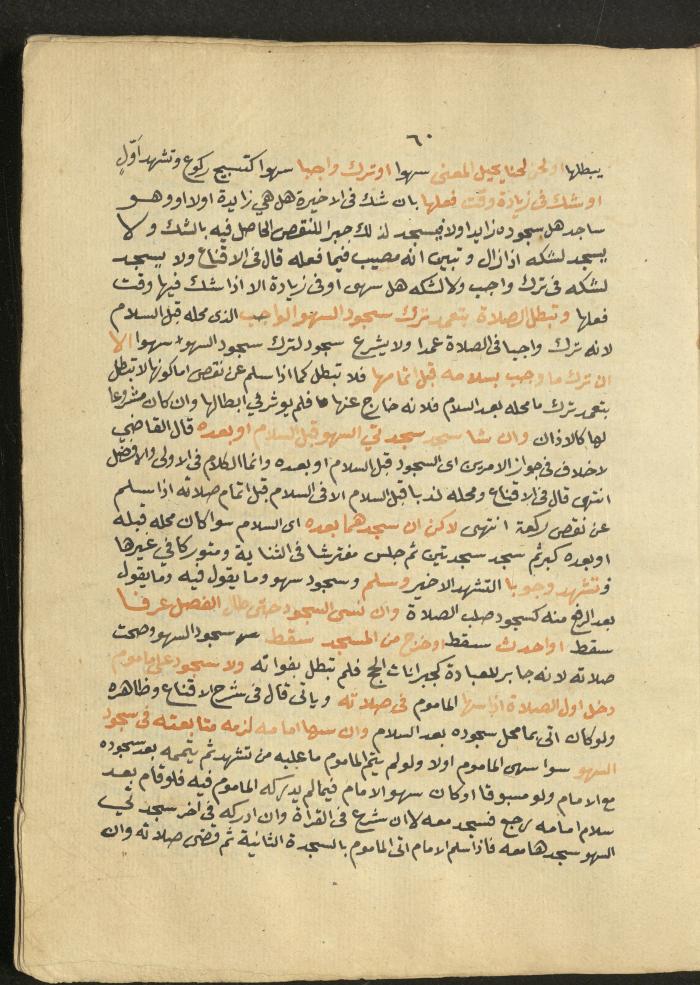 ٦٠
يبطلها او لحن لحنا يحيل المعنى سهوا او ترك واجبا سهوا كتسبيح ركوع وتشهد اول
او شك في زيادة وقت فعلها بان شك في الاخيرة هل هي زايدة اولا او وهو
ساجد هل سجوده زايد اولا فيسجد لذلك جبرا للنقص الحاصل فيه بالشك ولا
يسجد لشكه اذا زال وتبين انه مصيب فيما فعله قال في الاقناع ولا يسجد
لشكه في ترك واجب ولا لشكه هل سهى او في زيادة الا اذا شك فيها وقت
فعلها وتبطل الصلاة بتعمد ترك سجود السهو الواجب الذى محله قبل السلام
لانه ترك واجبا في الصلاة عمدا ولا يشرع سجود لترك سجود السهو سهوا الا
ان ترك ما وجب بسلامه قبل اتمامها فلا تبطل كما اذا سلم عن نقص اما كونها لا تبطل
بتعمد ترك ما محله بعد السلام فلانه خارج عنها فلم يوثر في ابطالها وان كان مشروعا
لها كالاذان وان شا سجد سجدتي السهو قبل السلام او بعده قال القاضي
لا خلاف في جواز الامرين اى السجود قبل السلام او بعده وانما الكلام في الاولى والافضل
انتهى قال في الاقناع ومحله ندبا قبل السلام الا في السلام قبل اتمام صلاته اذا سلم
عن نقص ركعة انتهى لاكن ان سجدهما بعده اى السلام سوا كان محله قبله
او بعده كبر ثم سجد سجدتين ثم جلس مفترشا في الثنائية ومتوركا في غيرها
وتشهد وجوبا التشهد الاخير وسلم وسجود سهو وما يقول فيه وما يقول
بعد الرفع منه كسجود صلب الصلاة وان نسى السجود حتى طال الفصل عرفا
سقط او احدث سقط او خرج من المسجد سقط سجود السهو وصحت
صلاته لانه جابر للعبادة كجبرانات الحج فلم تبطل بفواته ولا سجود على ماموم
دخل اول الصلاة اذا سها الماموم في صلاته وياتى قال في شرح الاقناع وظاهره
ولو كان اتى بما محل سجوده بعد السلام وان سها امامه لزمه متابعته في سجود
السهو سوا سهى الماموم اولا ولو لم يتم الماموم ما عليه من تشهد ثم يتممه بعد سجوده
مع الامام ولو مسبوقا او كان سهو الامام فيما لم يدركه الماموم فيه فلو قام بعد
سلام امامه رجع فسجد معه لا ان شرع في القراة وان ادركه في اخر سجدتي
السهو سجدها معه فاذا سلم الامام اتى الماموم بالسجدة الثانية ثم قضى صلاته وان